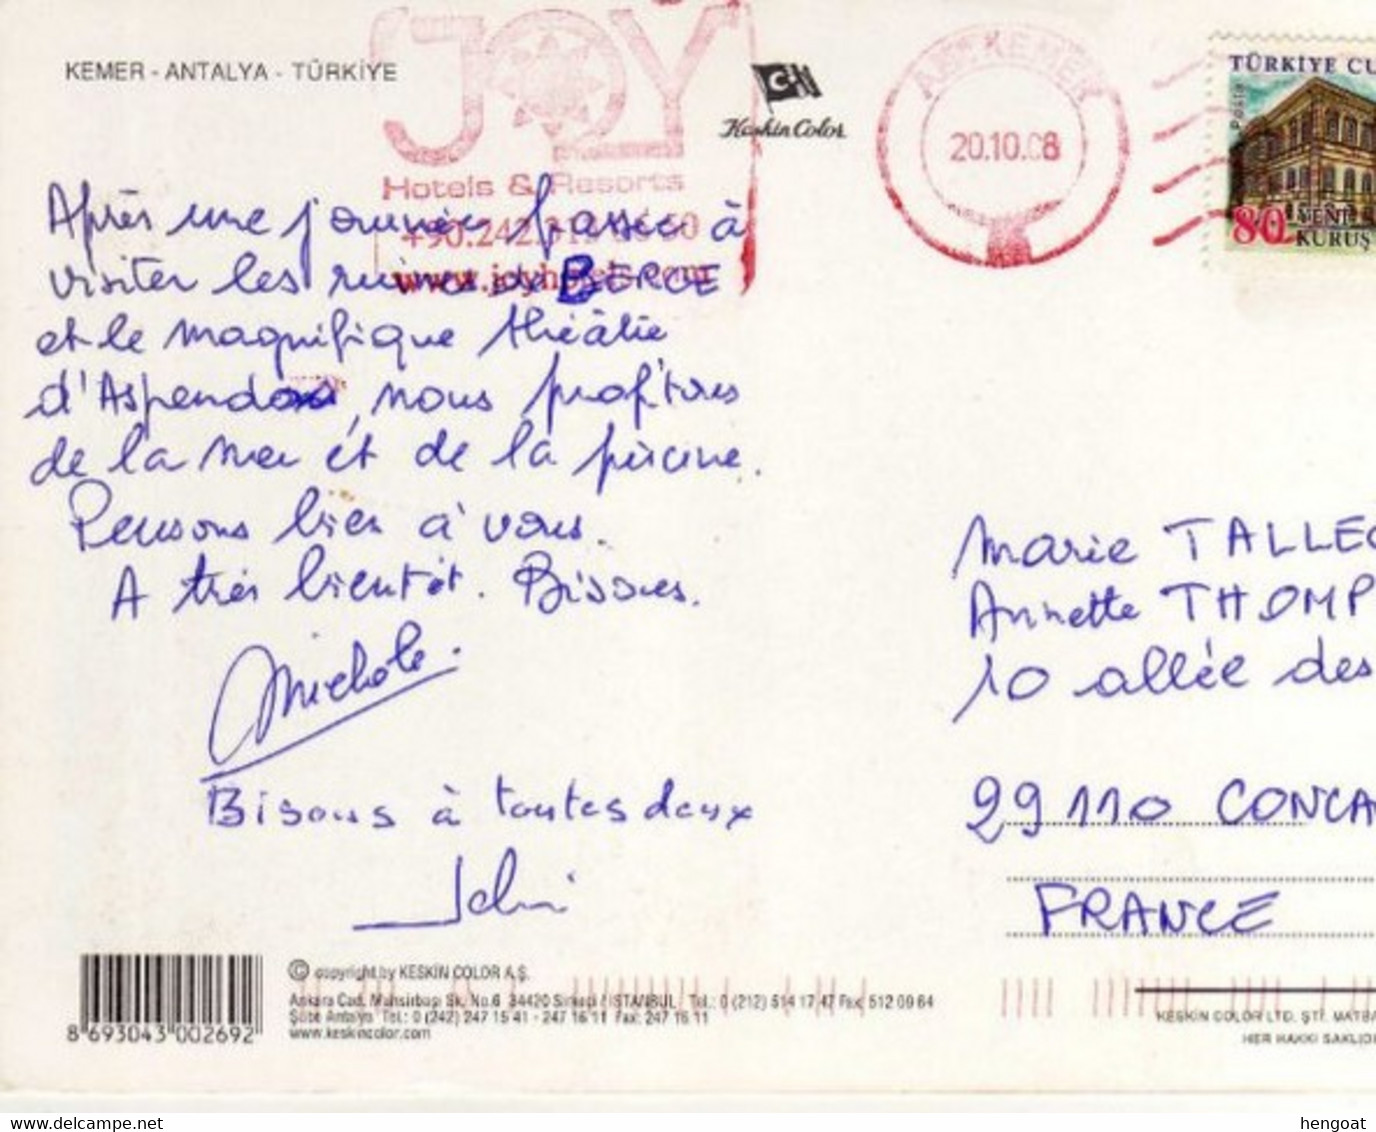 KEMER - ANTALYA - TÜRKİYE
JOY
Hotels & Resorts
www.joyhotels.com
Keskin Color
KEMER
20.10.08
TÜRKİYE CU
Posta
80
YENİ
KURUŞ
Après une journée passée à
visiter les ruines de BERGE
et le magnifique théâtre
d'Aspendos, nous profitons
de la mer et de la piscine.
Pensons bien à vous.
A très bientôt. Bisous.
Michèle.
Bisous à toutes deux
Marie TALLEC
Annette THOMP
10 allée des
29110 CONCA
FRANCE
8 693043 002692
© copyright by KESKİN COLOR A.Ş.
Ankara Cad. Muhsirbaşı Sk. No.6 34420 Sirkeci / İSTANBUL Tel.: 0 (212) 514 17 47 Fax: 512 09 64
Şube Antalya Tel.: 0 (242) 247 15 41 - 247 16 11 Fax: 247 16 11
www.keskincolor.com
KESKİN COLOR LTD. ŞTİ. MATBA
HER HAKKI SAKLIDI
hengoat